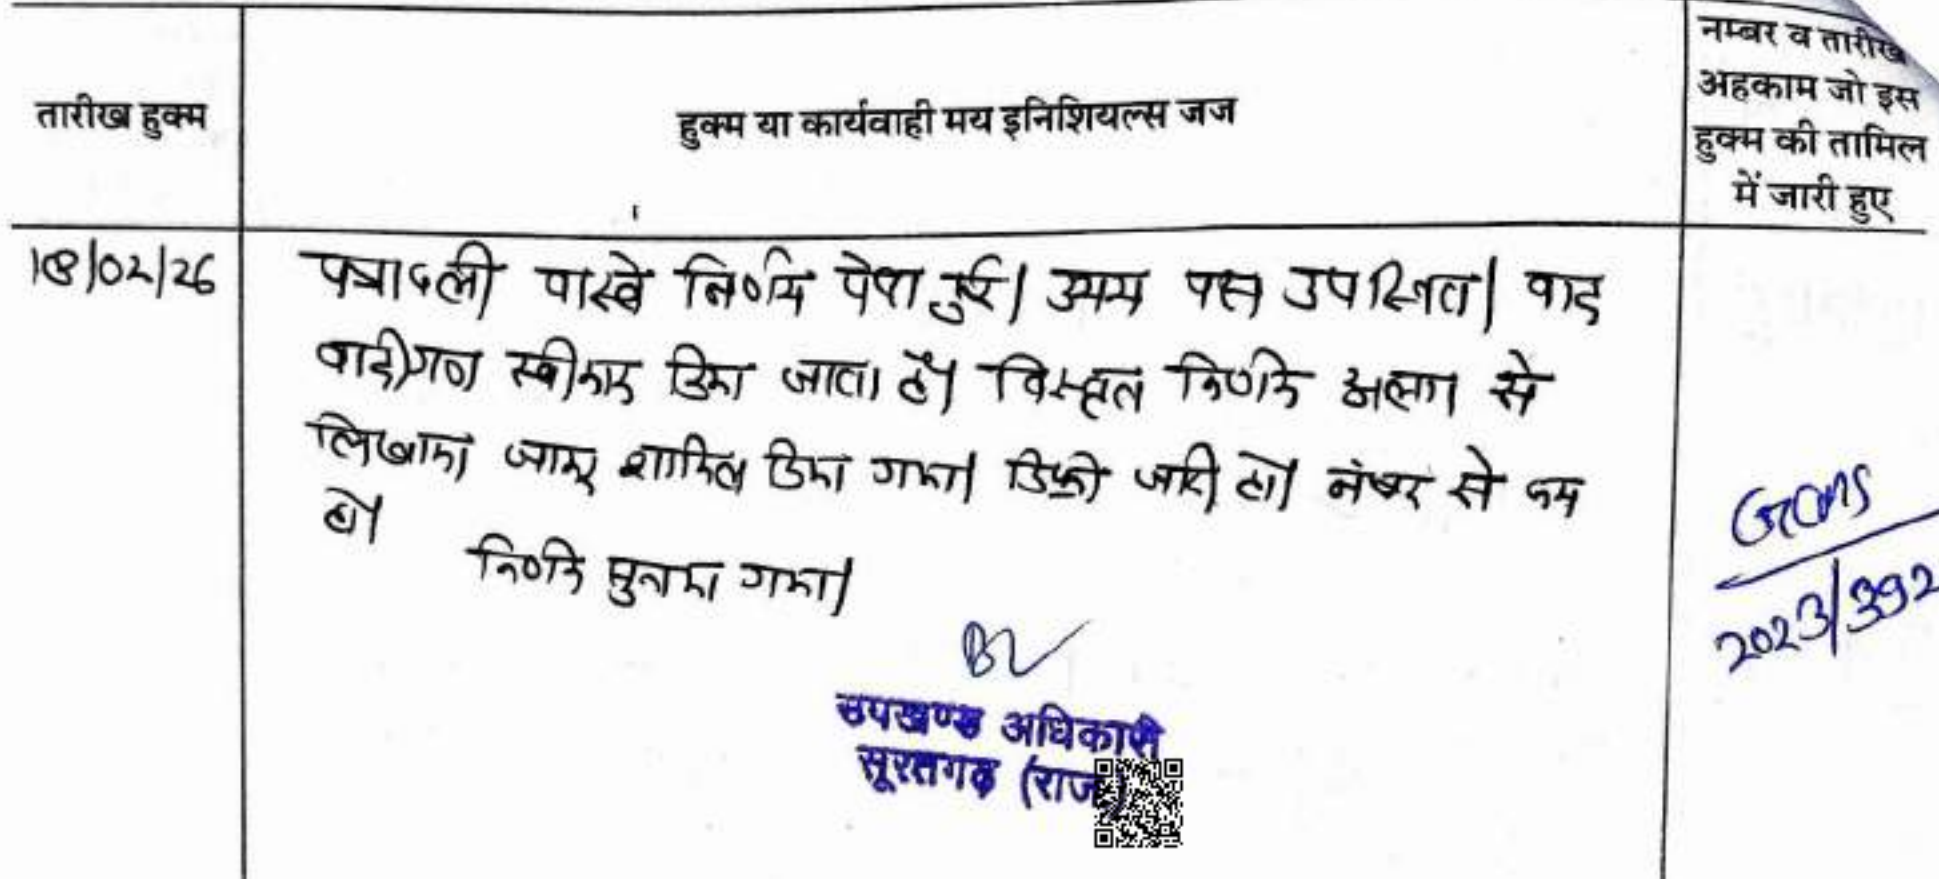 तारीख हुक्म
हुक्म या कार्यवाही मय इनिशियल्स जज
नम्बर व तारीख
अहकाम जो इस
हुक्म की तामिल
में जारी हुए
18/02/26
पत्रावली वास्ते निर्णय पेश हुई। उभय पक्ष उपस्थित। वाद
वादीगण स्वीकार किया जाता है। विस्तृत निर्णय अलग से
लिखाया जाकर शामिल किया गया। डिक्री जारी हो। नंबर से कम
हो।
निर्णय सुनाया गया।
उपखण्ड अधिकारी
सूरतगढ़ (राज
GCMS
2023/392